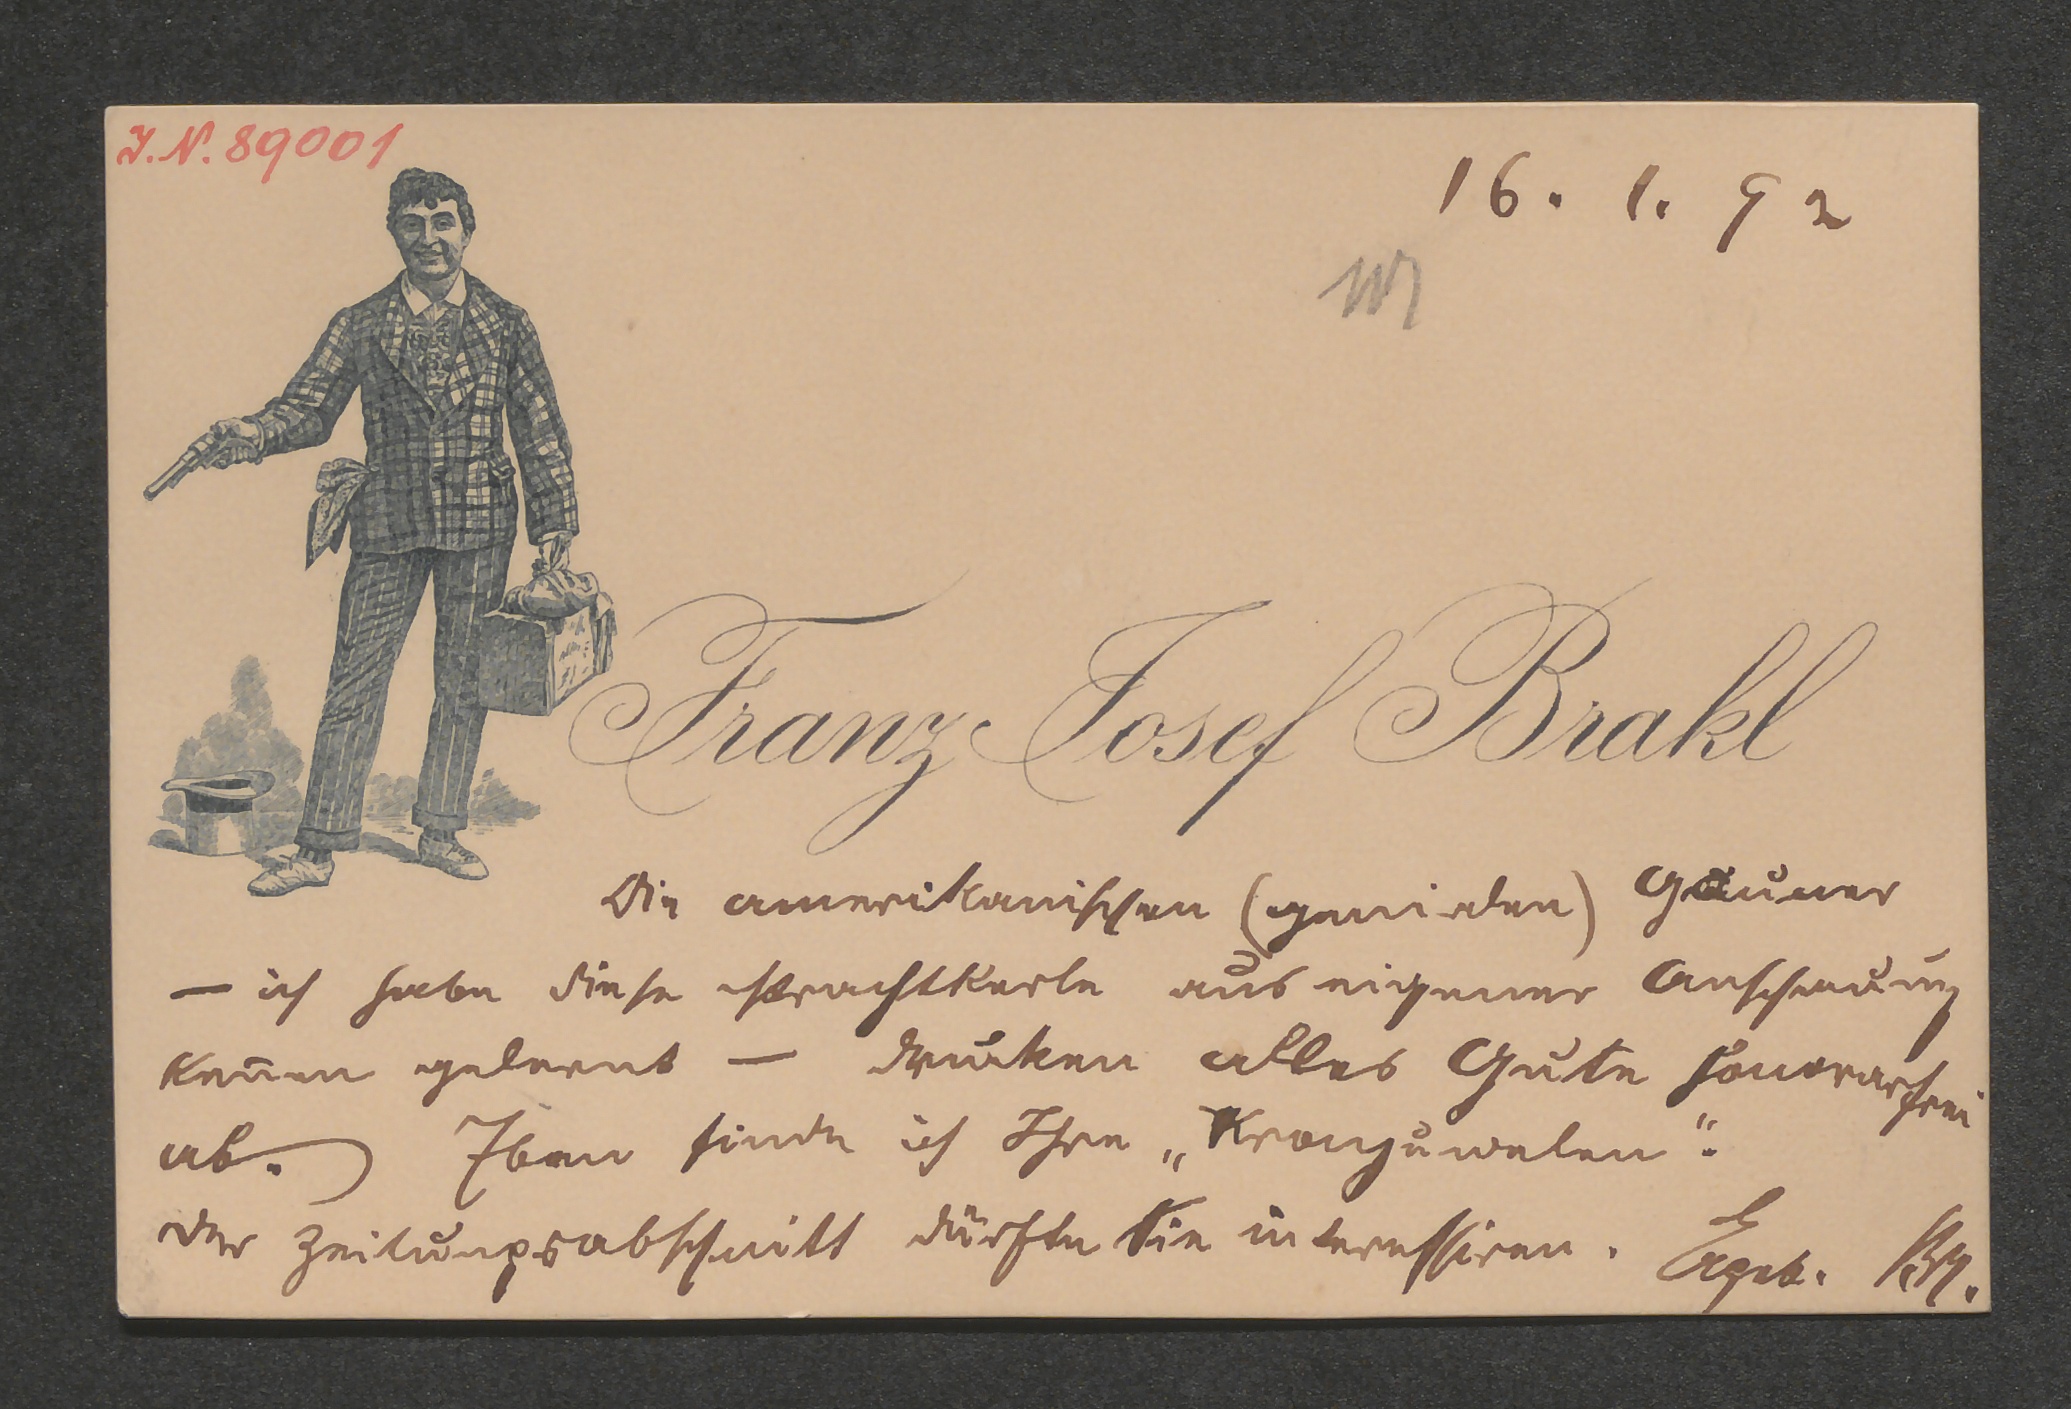 J.N. 89001
16. 1. 92
Franz Josef Brakl
Die amerikanischen (genialen) Gauner
— ich habe diese Prachtkerle aus eigener Anschauung
kennen gelernt — drucken alles Gute honorarfrei
ab. Eben finde ich Ihre „Kronjuwelen".
Der Zeitungsabschnitt dürfte Sie interessiren. Ergeb.